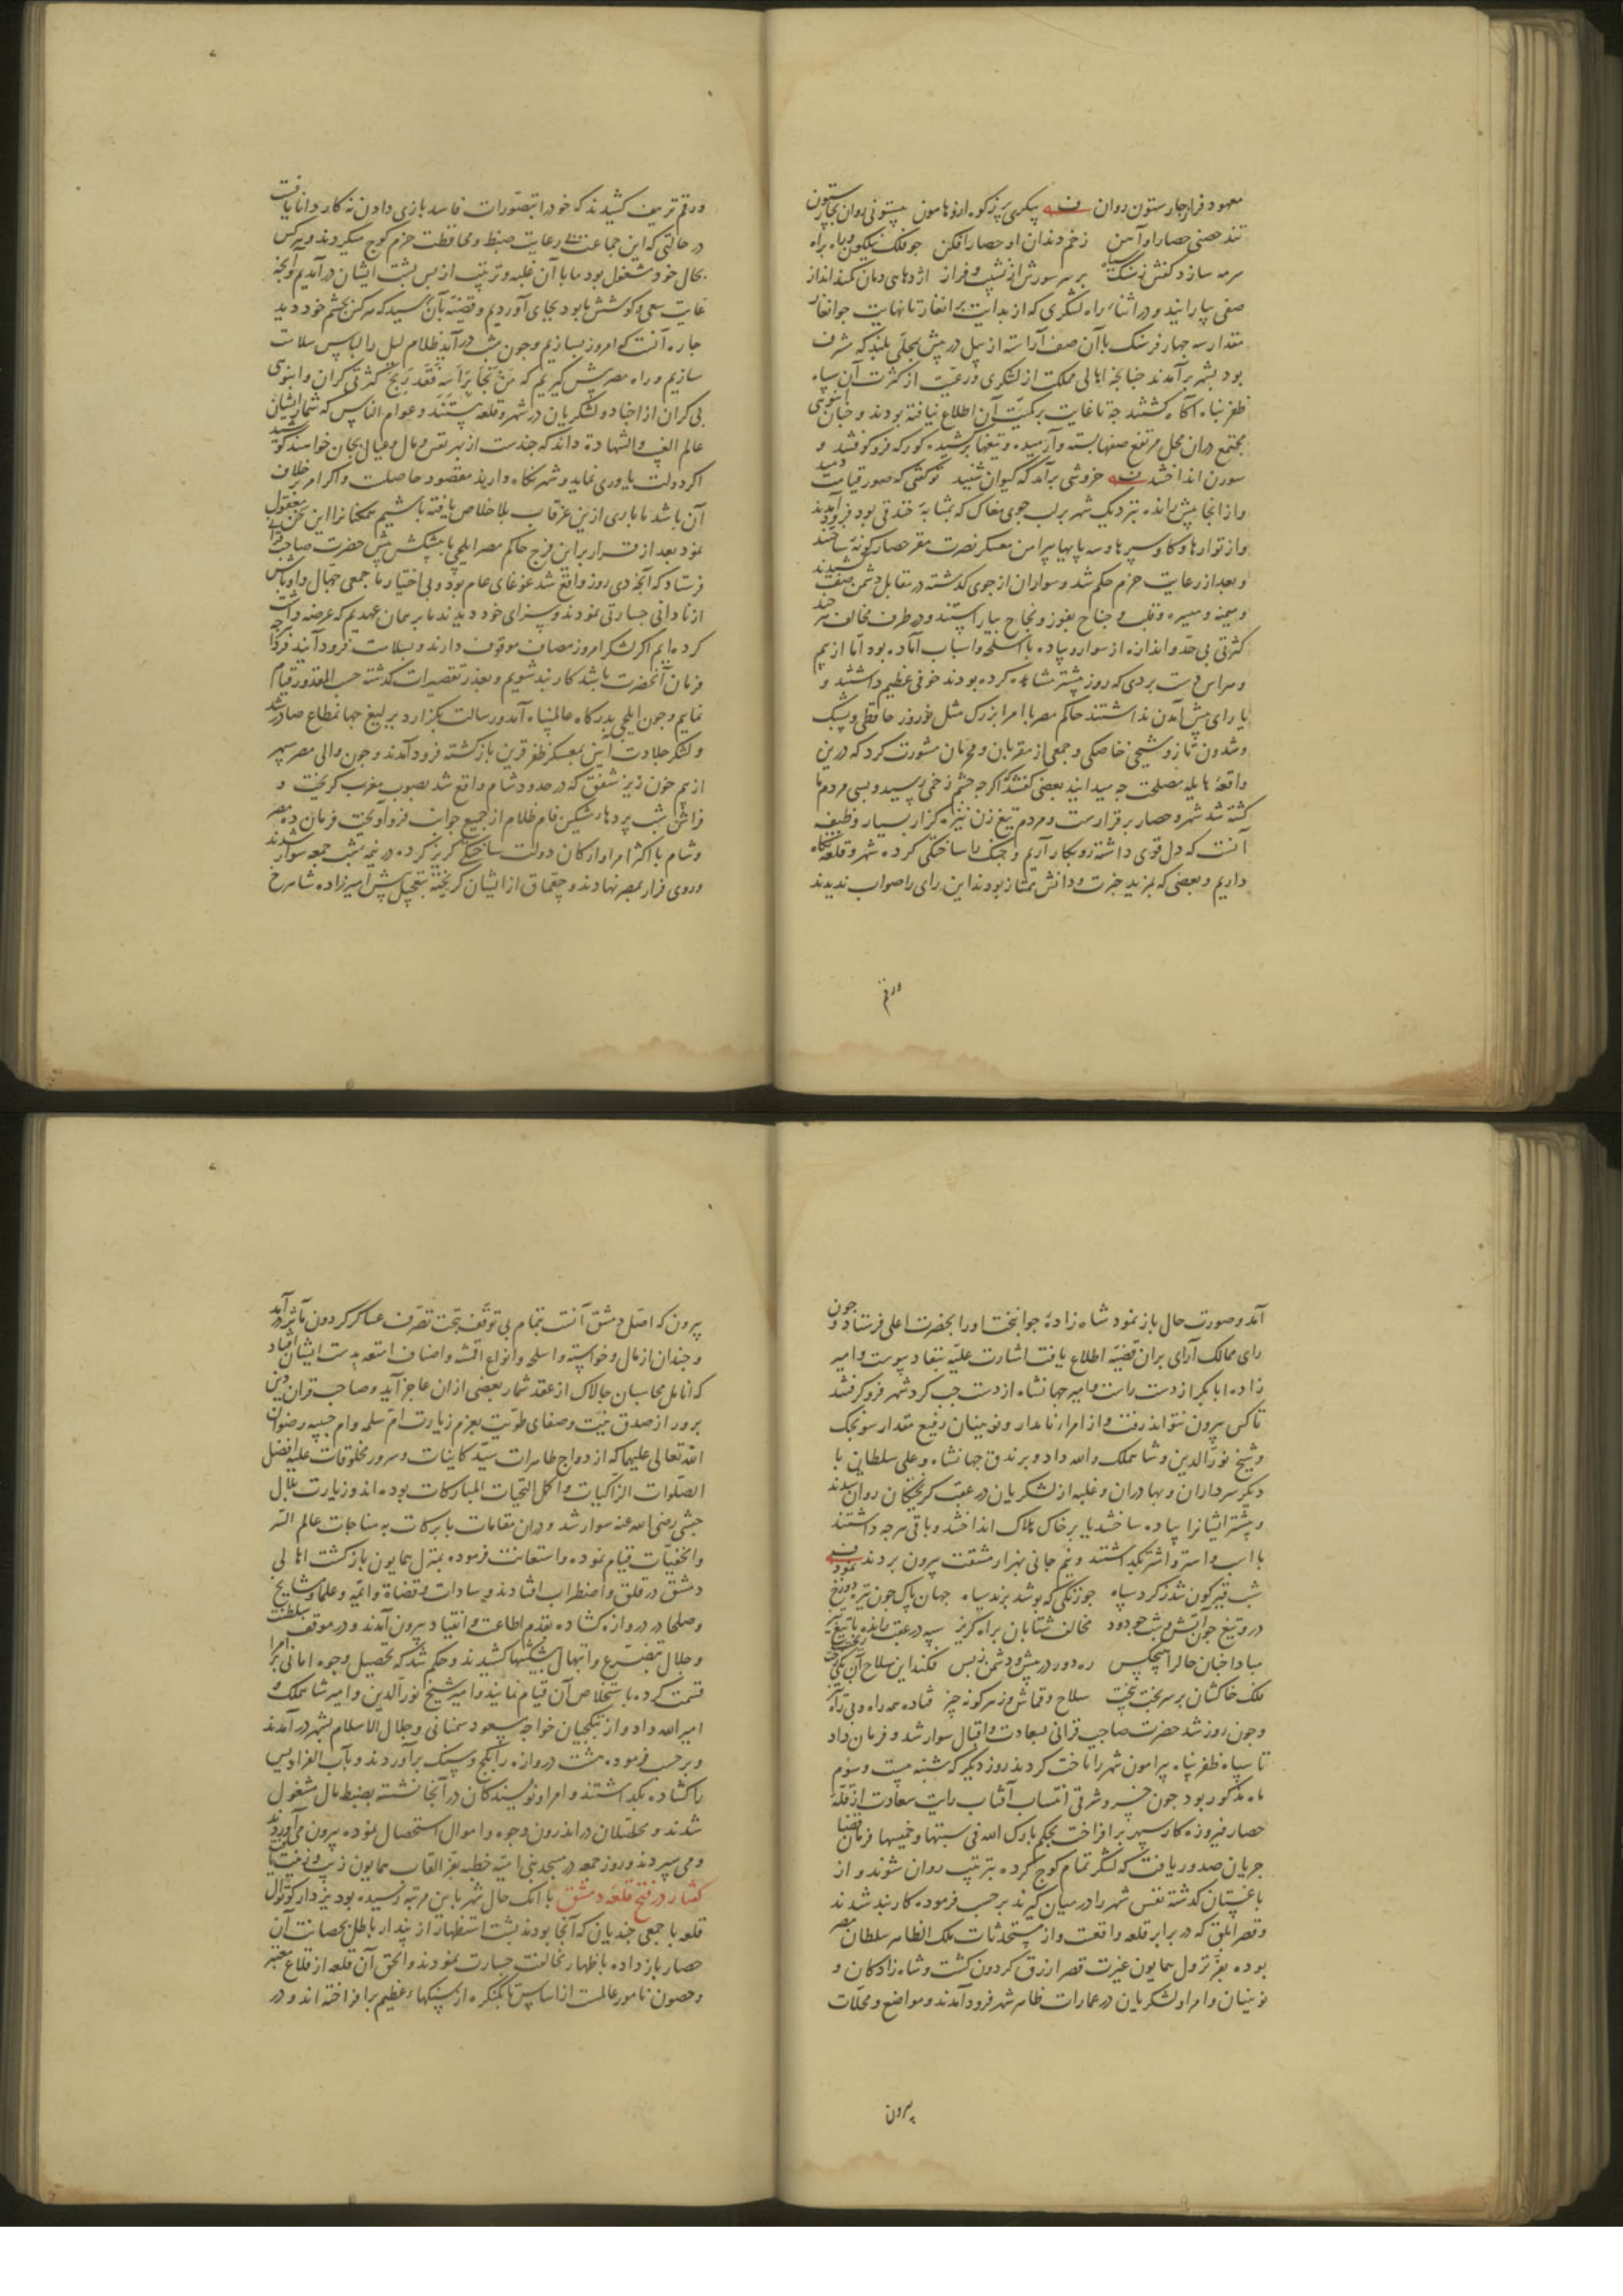 معهود فراز چار ستون روان پیکری پر ز کوه ارزو هامون بیستونی روان بچار ستون
تند حصنی حصار او آهن زخم دندان او حصار افکن چو فلک نیلگون و باه براه
سرمه سازد کفش ز سنگ سیاه بر سر سورش از نشیب و فراز اژدهای دمان کمند انداز
صفی بیارانید و در اثناء راه لشکری که از بدایت برانغار تا نهایت جوانغار
مقدار سه چهار فرسنگ با آن صف آراسته از پیل در پیش بمحلی بلند که مشرف
بود بشهر برآمدند چنانچه اهالی مملکت از لشکری و رعیت از کثرت آن سپاه
ظفر پناه آگاه گشتند چه تا غایت بر کمیت آن اطلاع نیافته بودند و چنان انبوهی
مجتمع دران محل مرتفع صفها بسته و آرمیده و تیغها برکشیده کورکه فرو کوفتند و
سورن انداختند خروشی برآمد که کیوان شنید تو گفتی که صور قیامت دمید
و از انجا پیش رانده بنزدیک شهر بر لب جوی مغاک که بمثابه خندقی بود فرود آمدند
و از توارها و کاو سپرها و سه پایها پیرامن معسکر نصرت مقر حصار کونه ساختند
و بعد از رعایت حزم حکم شد و سواران از جوی گذشته در مقابل دشمن صف کشیدند
و میمنه و میسره و قلب و جناح بفوز و نجاح بیاراستند و در طرف مخالف هر چند
کثرتی بی حد و اندازه از سوار و پیاده با اسلحه و اسباب آماده بود اما از بیم
و هراس دست بردی که روز پیشتر مشاهده کرده بودند خوفی عظیم داشتند و
یارای پیش آمدن نداشتند حاکم مصر با امرا بزرک مثل نوروز حافظی و یشبک
و شدون تاز و شیخی خاصکی و جمعی از مقربان و محرمان مشورت کرد که درین
واقعه هایله مصلحت چه میدانید بعضی گفتند اگرچه چشم زخمی رسید و بسی مردم ما
کشته شد شهر و حصار برقرارست و مردم تیغ زن نیزه گزار بسیار وظیفه
آنست که دل قوی داشته رو بکار آریم و جنک را ساختگی کرده شهر و قلعه نگاه
داریم و بعضی که بمزید خبرت و دانش ممتاز بودند این رای را صواب ندیدند
ورقم
ورقم تزییف کشیدند که خود را بتصورات فاسد بازی دادن نه کار دانایانست
در حالتی که این جماعت رعایت ضبط و محافظت حزم کوچ میکردند و هر کس
بحال خود مشغول بود ما با آن غلبه و ترتیب از پس پشت ایشان درآمدیم و آنچه
غایت سعی و کوشش ما بود بجای آوردیم و قضیه بآن رسید که هر کس بچشم خود دید
چاره آنست که امروز بسازیم و چون شب درآید ظلام لیل را لباس سلامت
سازیم و راه مصر پیش گیریم که من نجا برأسه فقد ربح کثرتی گران و انبوهی
بی کران از اجناد و لشکریان در شهر و قلعه هستند و عوام الناس که شمار ایشان
عالم الغیب و الشهادة داند که چندست از بهر نفس و مال و عیال بجان خواهند کوشید
اگر دولت یاوری نماید و شهر نگاه دارند مقصود حاصلست و اگر امر بر خلاف
آن باشد ما باری ازین غرقاب بلا خلاص یافته باشیم همکنانرا این سخن معقول
نمود بعد از قرار برین فرج حاکم مصر ایلچی با پیشکش پیش حضرت صاحب قران
فرستاد که آنچه دی روز واقع شد غوغای عام بود و بی اختیار ما جمعی جهال و اوباش
از نادانی جسارتی نمودند و سزای خود دیدند ما بر همان عهدیم که عرضه داشت
کرده ایم اگر لشکر امروز مصاف موقوف دارند و بسلامت فرود آیند فردا هرچه
فرمان آنحضرت باشد کاربند شویم و بعذر تقصیرات گذشته حسب المقدور قیام
نمایم و چون ایلچی بدرگاه عالمپناه آمد و رسالت بگزارد یرلیغ جهانمطاع صادر شد
و لشکر جلادت آیین بمعسکر ظفر قرین بازگشته فرود آمدند و چون والی مصر سپهر
از بیم خون ریز شفق که در حدود شام واقع شد بصوب مغرب گریخت و
فراش شب پردهاء مشکین فام ظلام از جمیع جوانب فرو آویخت فرمان ده مصر
و شام با اکثر امرا و ارکان دولت ساختگی گریز کرده در نیمه شب جمعه سوار شدند
و روی فرار بمصر نهادند و چقماق از ایشان گریخته بتعجیل پیش امیرزاده شاهرخ
آمد و صورت حال باز نمود شاه زاده جوانبخت او را بحضرت اعلی فرستاد و چون
رای ممالک آرای بران قضیه اطلاع یافت اشارت علیه بنفاد پیوست و امیر
زاده ابابکر از دست راست و امیر جهانشاه از دست چپ گرد شهر فرو گرفتند
تا کس بیرون نتواند رفت و از امراء نامدار و نوینان رفیع مقدار سونجک
و شیخ نورالدین و شاهملک و الله داد و برندق جهانشاه و علی سلطان با
دیگر سرداران و بهادران و غلبه از لشکریان در عقب گریختگان روان شدند
و بیشتر ایشانرا پیاده ساختند یا بر خاک هلاک انداختند و باقی هرچه داشتند
با اسب و استر و اشتر بگذاشتند و نیم جانی بهزار مشقت بیرون بردند نمود
شب قیرگون شد ز گرد سپاه چو زنگی که پوشد پرند سیاه جهان پاک چون تیره دوزخ
درو تیغ چون آتش و شب چو دود مخالف شتابان براه گریز سپه در عقب مانده با تیغ تیز
مبادا چنان حال را هیچکس ره دور در پیش و دشمن ز پس فکند این سلاح آن یکی
فلک خاکشان بر سر بخت بیخت سلاح و قماش و زهر گونه چیز فتاده همه راه و بی راه
و چون روز شد حضرت صاحب قرانی بسعادت و اقبال سوار شد و فرمان داد
تا سپاه ظفر پناه پیرامون شهر را تاخت کردند روز دیگر که شنبه بیست و سوم
ماه مذکور بود چون خسرو شرقی انتساب آفتاب رایت سعادت از قله
حصار فیروزه کار سپهر برافراخت بحکم بارک الله فی سبتها و خمیسها فرمان قضا
جریان صدور یافت که لشکر تمام کوچ کرده بترتیب روان شوند و از
باغستان گذشته نفس شهر را در میان گیرند بر حسب فرموده کاربند شدند
و قصر ابلق که در برابر قلعه واقعست و از مستحدثات ملک الظاهر سلطان مصر
بوده بعز نزول همایون غیرت قصر ازرق گردون گشت و شاه زادکان و
نوینان و امرا و لشکریان در عمارات ظاهر شهر فرود آمدند و مواضع و محلات
بیرون
بیرون که اصل دمشق آنست بتمام بی توقف بتحت تصرف عساکر گردون مآثر درآمد
و چندان از مال و خواسته و اسلحه و انواع اقمشه و اصناف امتعه بدست ایشان افتاد
که انامل محاسبان چالاک از عقد شمار بعضی از آن عاجز آید و صاحب قران دین
پرور از صدق نیت و صفای طویت بعزم زیارت ام سلمه و ام حبیبه رضوان
الله تعالی علیهما که ازدواج طاهرات سید کاینات و سرور مخلوقات علیه افضل
الصلوات الزاکیات و اکمل التحیات المبارکات بوده اند و زیارت بلال
حبشی رضی الله عنه سوار شد و دران مقامات بابرکات بمناجات عالم السر
والخفیات قیام نموده و استعانت فرموده بمنزل همایون بازگشت اهالی
دمشق در قلق و اضطراب افتادند و سادات و قضاة و ائمه و علما و مشایخ
و صلحا در دروازه گشاده بقدم اطاعت و انقیاد بیرون آمدند و در موقف سلطنت
و جلال بتضرع و ابتهال پیشکشها کشیدند و حکم شد که تحصیل وجوه امانی بر امرا
قسمت کرده باستخلاص آن قیام نمایند و امیر شیخ نورالدین و امیر شاهملک و
امیر الله داد و از بتکچیان خواجه مسعود سمنانی و جلال الاسلام بشهر درآمدند
و بر حسب فرموده هشت دروازه را بکچ و سنک برآوردند و باب الفرادیس
را گشاده بگذاشتند و امرا و نویسندکان در آنجا نشسته بضبط مال مشغول
شدند و محصلان در اندرون وجوه و اموال استحصال نموده بیرون می آوردند
و می سپردند و روز جمعه در مسجد بنی امیه خطبه بعز القاب همایون زیب و زینت یافت
گفتار در فتح قلعه دمشق با آنک حال شهر باین مرتبه رسیده بود یزدار کوتوال
قلعه با جمعی جندیان که آنجا بودند پشت استظهار از پندار باطل بحصانت آن
حصار باز داده باظهار مخالفت جسارت نمودند و الحق آن قلعه از قلاع معتبر
و حصون نامور عالمست از اساس تا بکنکره از سنکهاء عظیم برافراخته اند و در